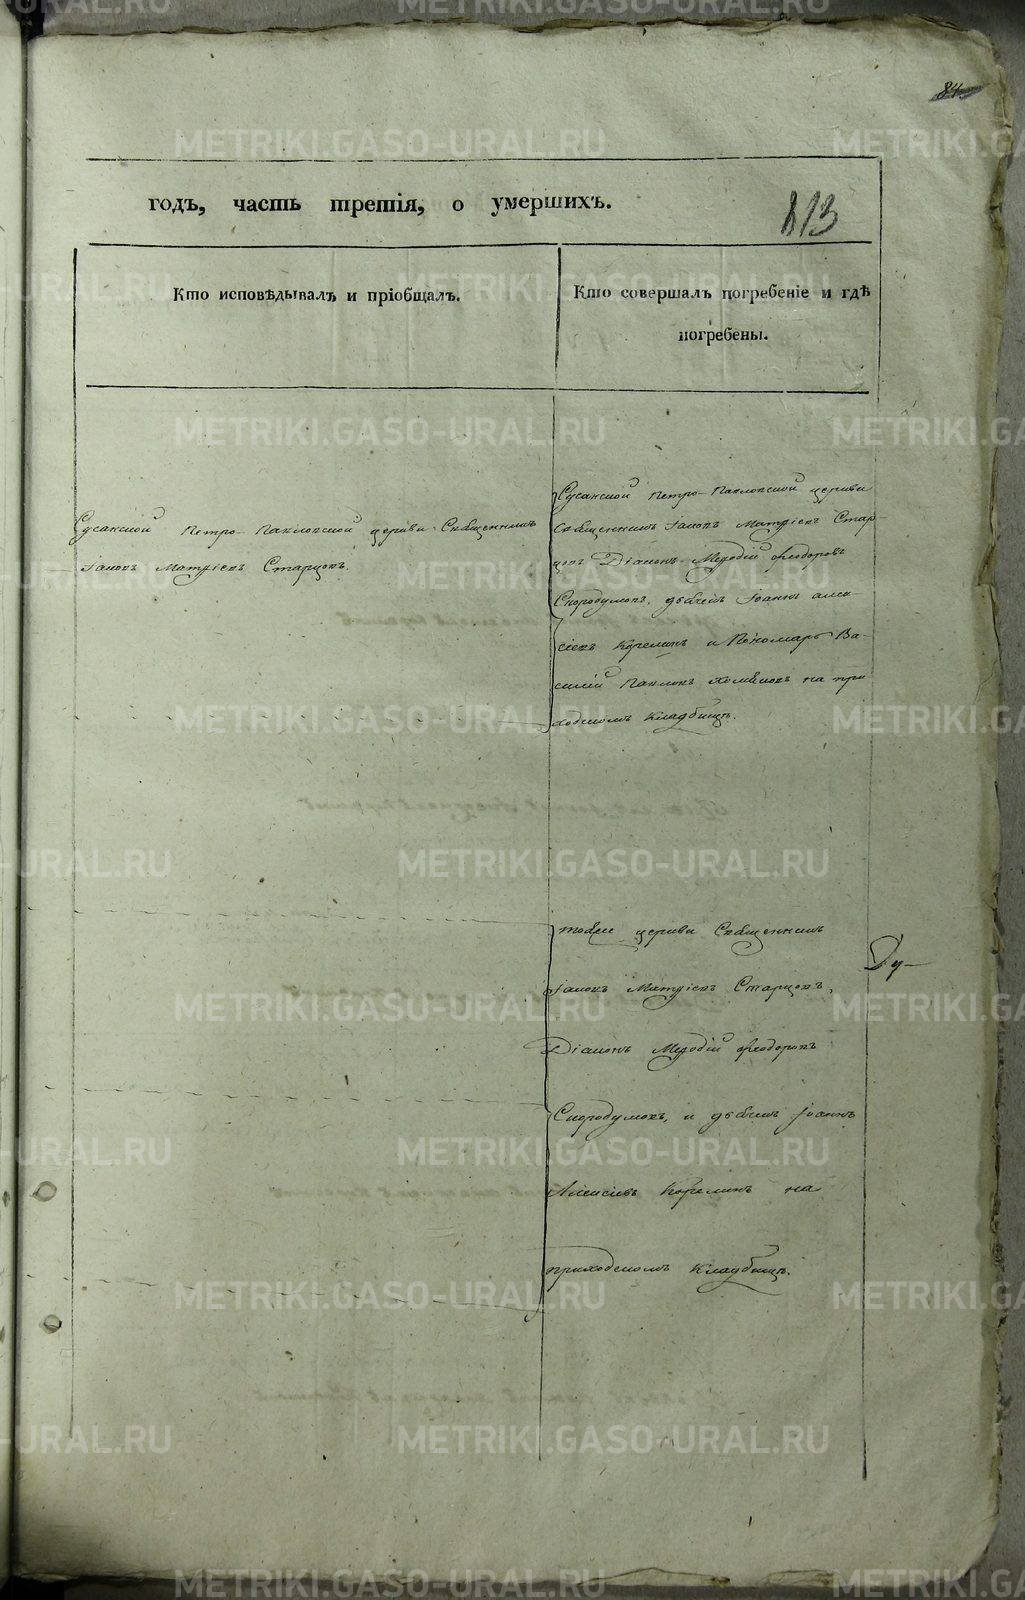 84
годъ, часть третія, о умершихъ.
813
Кто исповѣдывалъ и пріобщалъ.
Кто совершалъ погребеніе и гдѣ
погребены.
Сусанской Петро-Павловской церкви Священникъ
Іаковъ Матѳіевъ Старцовъ.
Сусанской Петро-Павловской церкви
Священникъ Іаковъ Матѳіевъ Стар-
цовъ Діаконъ Меѳодій Ѳеодоровъ
Скородумовъ, дьячекъ Іоаннъ Алек-
сіевъ Корелинъ и Пономарь Ва-
силій Павловъ на при
ходскомъ кладбищѣ.
тойже церкви Священникъ
Іаковъ Матѳіевъ Старцовъ,
Діаконъ Меѳодій Ѳеодоровъ
Скородумовъ, и дьячекъ Іоаннъ
Алексіевъ Корелинъ на
приходскомъ кладбищѣ.
Ду-
METRIKI.GASO-URAL.RU